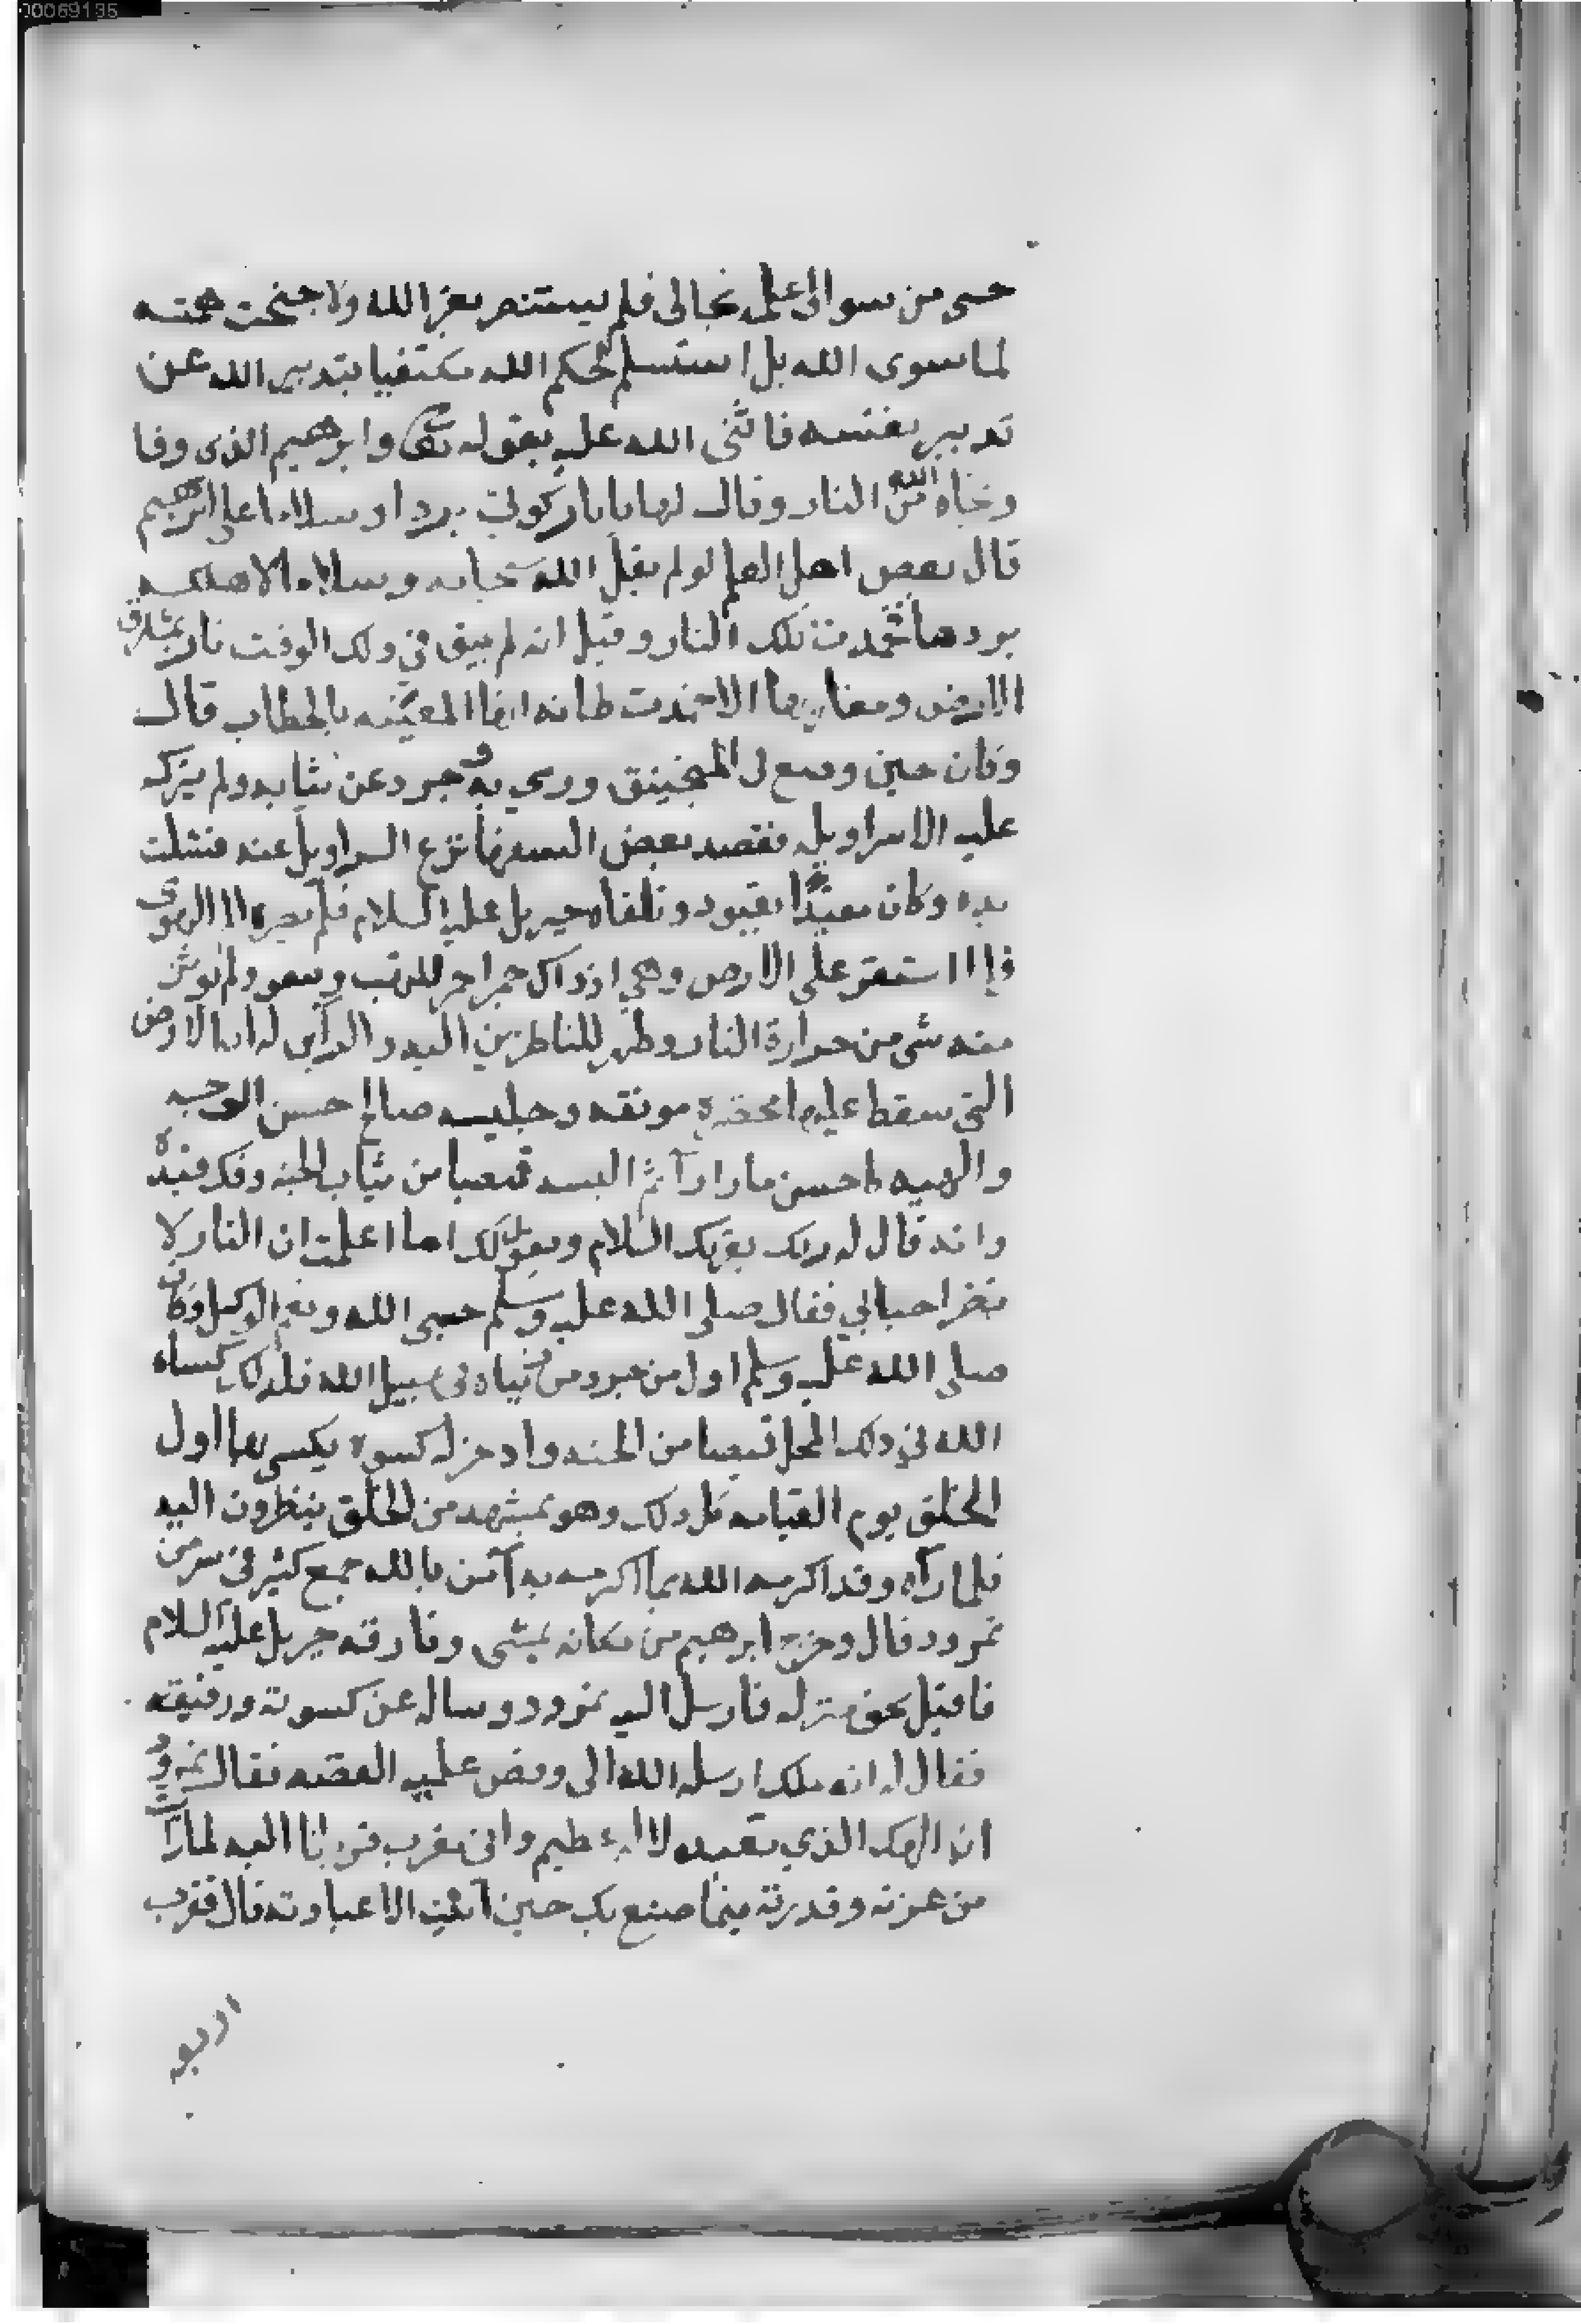 00069135
حسبي من سوالي علمه بحالي فلم يستنصر بغير الله ولا جنحت همته
لما سوى الله بل استسلم لحكم الله مكتفيا بتدبير الله عن
تدبير نفسه فاثنى الله عليه بقوله تعالى وابرهيم الذى وفا
ونجاه الله من النار وقال لها يا نار كوني بردا وسلاما على ابرهيم
قال بعض اهل العلم لو لم يقل الله سبحانه وسلاما لاهلكه
بردها فخمدت تلك النار وقيل انه لم يبق في ذلك الوقت نار بمشارق
الارض ومغاربها الا خمدت ظانه انها المعينه بالخطاب قال
وكان حين وضع في المنجنيق ورمي به جرد عن ثيابه ولم يترك
عليه الا سراويله فقصد بعض السفها نزع السراويل عنه فشلت
يده وكان مقيدا بقيود وتلقاه جبريل عليه السلام فلم يضره الهوى
فلما استقر على الارض وهي اذ ذاك جمر احمر لم ولم توثر
منه شى من حرارة النار وظهر للناظرين اليه والراى له ان الارض
التي سقط عليها مخضره مونقه وجليسه صالح حسن الوجه
والهييه كاحسن ما را را ثم البسه قميصا من ثياب الجنه وفك قيده
وانه قال له ربك يقريك السلام ويقول لك اما علمت ان النار لا
تضر احبابي فقال صلى الله عليه وسلم حسبي الله ونعم الوكيل وكان
صلى الله عليه وسلم اول من جرد من ثيابه في سبيل الله فلذلك كساه
الله في ذلك المحل قميصا من الجنه وادخر له كسوه يكسى بها اول
الخلق يوم القيامه كل ذلك وهو بمشهد من الخلق ينظرون اليه
فلما راه وقد اكرمه الله بما اكرمه به آمن بالله جمع كثير في سر من
نمرود قال وخرج ابرهيم من مكانه يمشى وفارقه جبريل عليه السلام
فاقبل نحو منزله فارسل اليه نمرود وساله عن كسوته ورفيقه
فقال له انه ملك ارسله الله الى وقص عليه القصه فقال نمرود
ان الهك الذي تعبده لاله عظيم وانى مقرب قربانا اليه لما رات
من عزته وقدرته فيما صنع بك حين ابيت الا عبادته قال فقرب